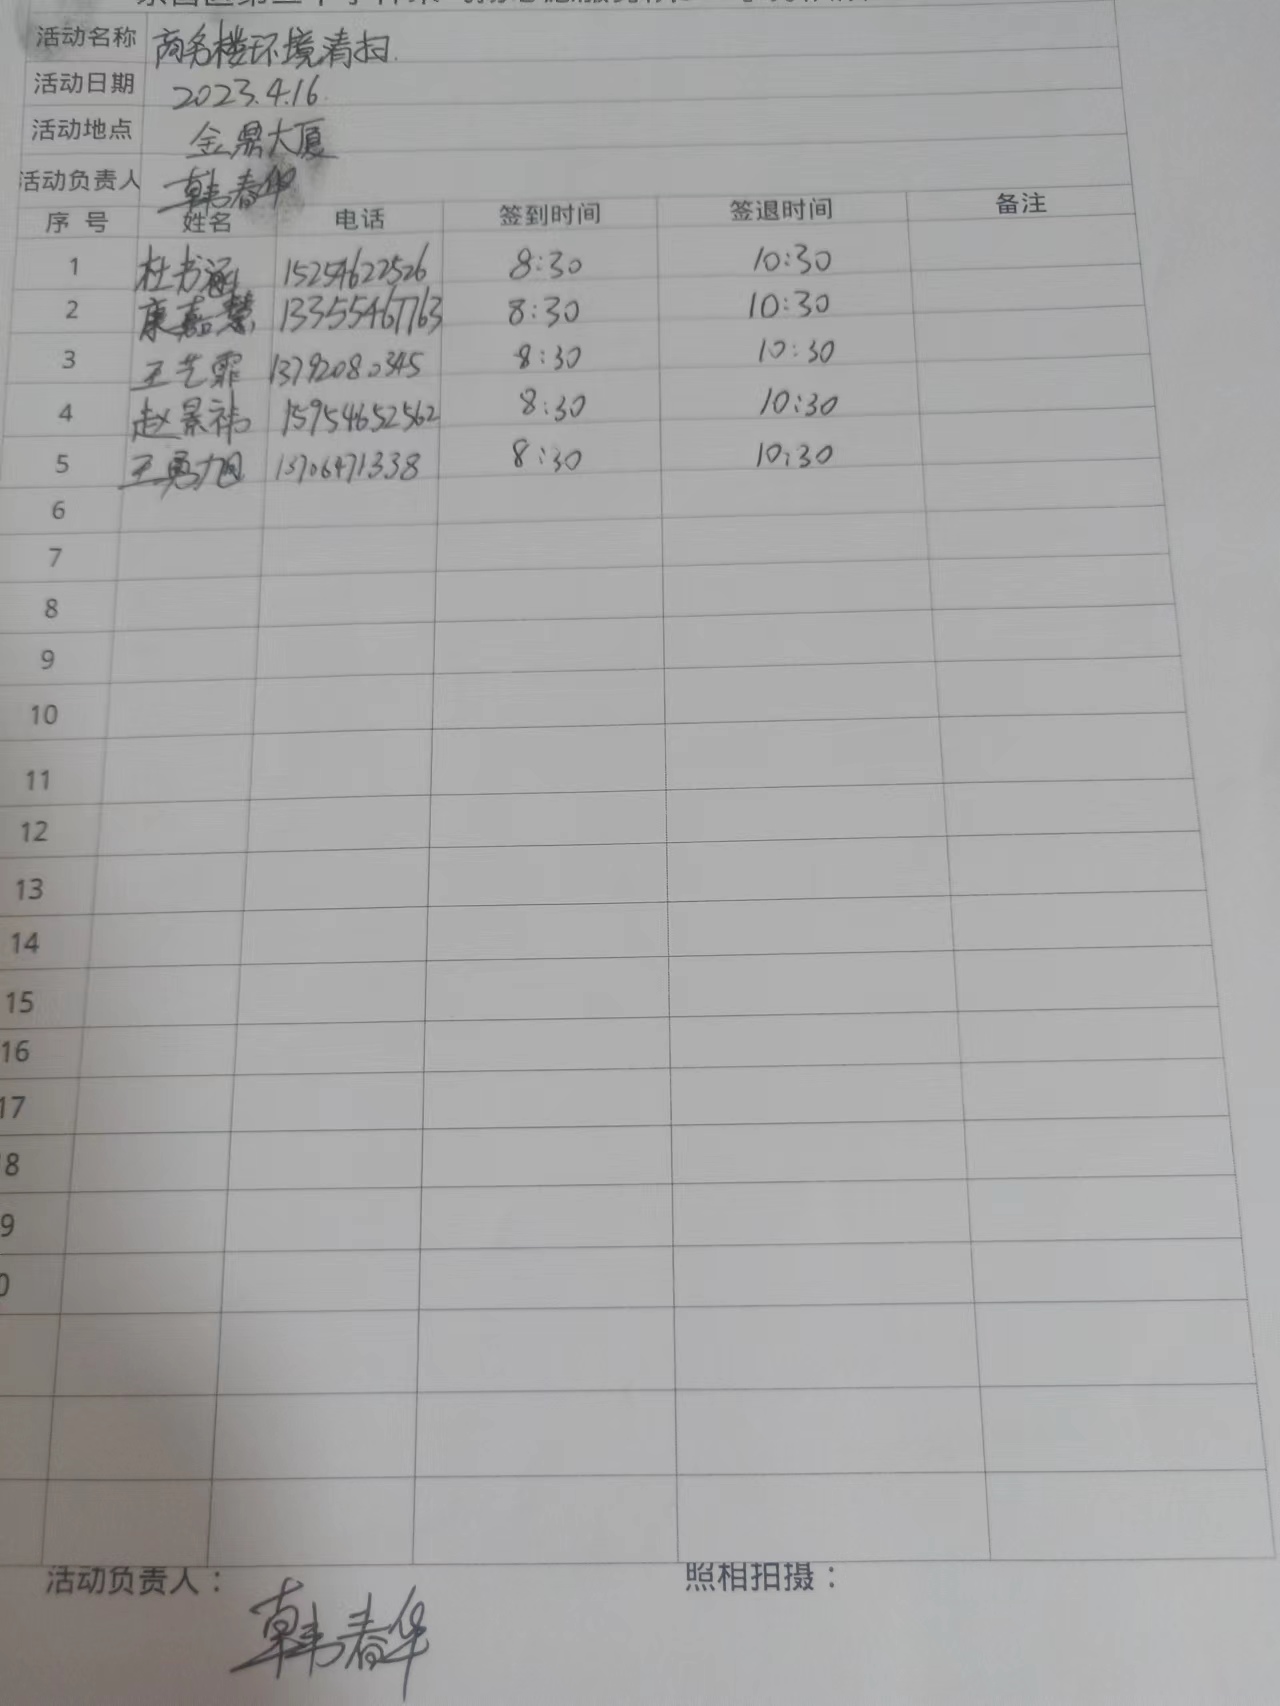 活动名称 商务楼环境清扫.
活动日期 2023.4.16.
活动地点 金鼎大厦
活动负责人 韩春华
序号 姓名 电话 签到时间 签退时间 备注
1 杜书涵 15254622526 8:30 10:30
2 康嘉慧 13355467763 8:30 10:30
3 王艺霏 13792080345 8:30 10:30
4 赵景祎 15954652562 8:30 10:30
5 王勇旭 13706471338 8:30 10:30
6
7
8
9
10
11
12
13
14
15
16
17
8
9
0
活动负责人： 韩春华 照相拍摄：